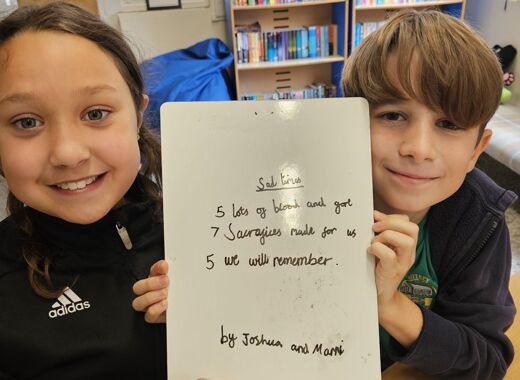 Sad times
5 lots of blood and gore
7 Sacrafices made for us
5 we will remember.
by Joshua and Marni
adidas